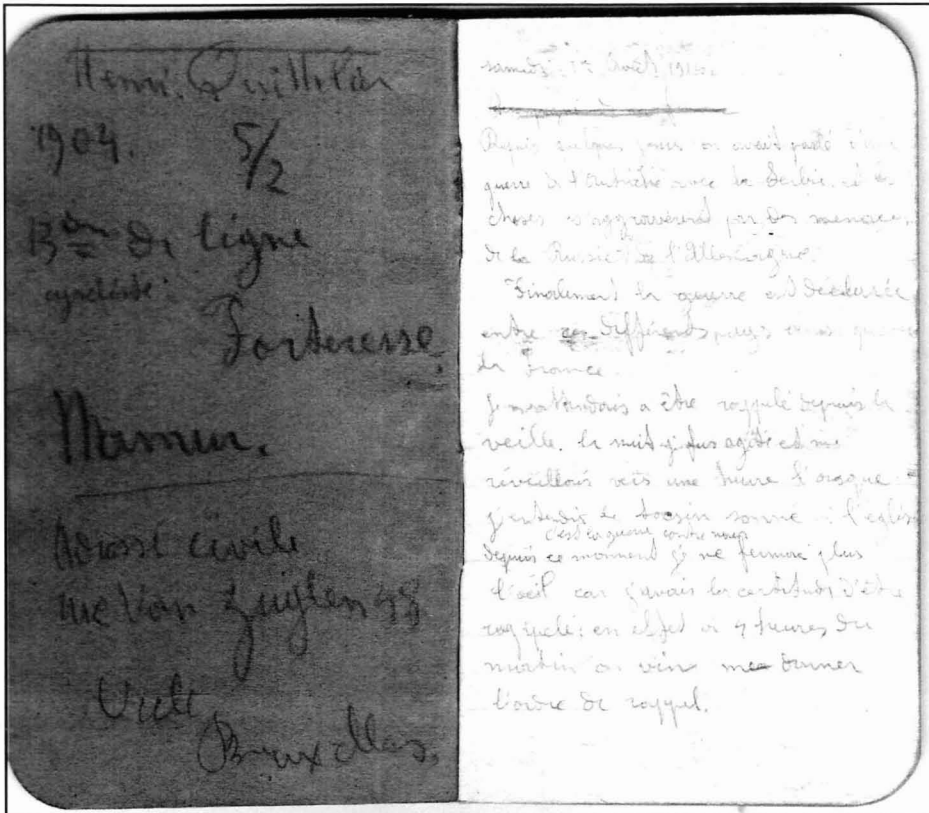 Henri.
1904. 5/2
13 de ligne
Forteresse
Namur.
Adresse civile
rue Van Zuylen
Uccle
Bruxelles.
samedi 1r Août 1914.
Depuis quelques jours on avait parlé d'une
guerre de l'Autriche avec la Serbie et les
choses s'aggravèrent par des menaces
de la Russie de l'Allemagne.
Finalement la guerre est déclarée
entre ces différents pays
la France.
Je m'attendais a être rappelé depuis la
veille. la nuit je fus agité et me
réveillais vers une heure lorsque
j'entendis le tocsin sonné à l'église
c'est la guerre contre nous
depuis ce moment je ne fermai plus
l'oeil car j'avais la certitude d'être
rappelé; en effet à 4 heures du
matin on vin me donner
l'ordre de rappel.